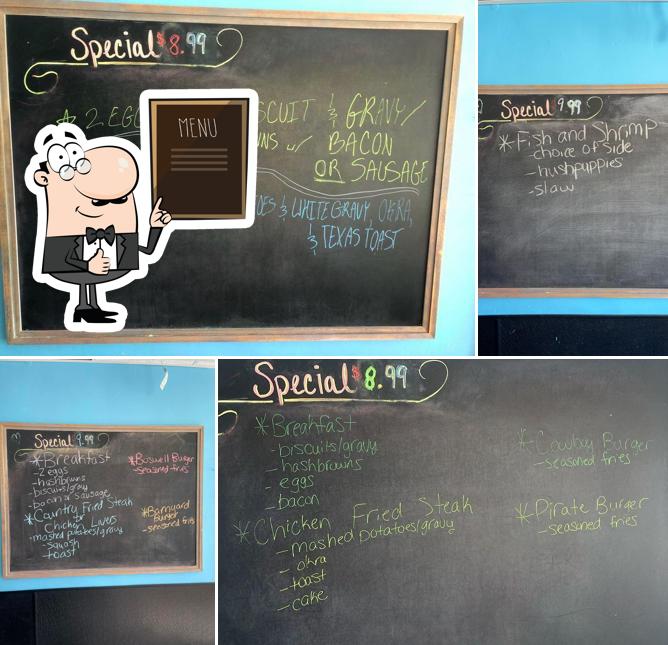 Special $8.99
2 EGG
SCUIT & GRAVY/
NS w/ BACON
OR SAUSAGE
OES & WHITE GRAVY, OKRA,
& TEXAS TOAST
MENU
Special 9.99
*Fish and Shrimp
-choice of side
-hushpuppies
-slaw
Special 9.99
*Breakfast
-2 eggs
-hashbrowns
-biscuits/gravy
-bacon or sausage
*Country Fried Steak
or
Chicken Livers
-mashed potatoes/gravy
-squash
-toast
*Boswell Burger
-seasoned fries
*Barnyard
Burger
-seasoned fries
Special $8.99
*Breakfast
-biscuits/gravy
-hashbrowns
-eggs
-bacon
*Chicken Fried Steak
-mashed potatoes/gravy
-okra
-toast
-cake
*Cowboy Burger
-seasoned fries
*Pirate Burger
-seasoned fries